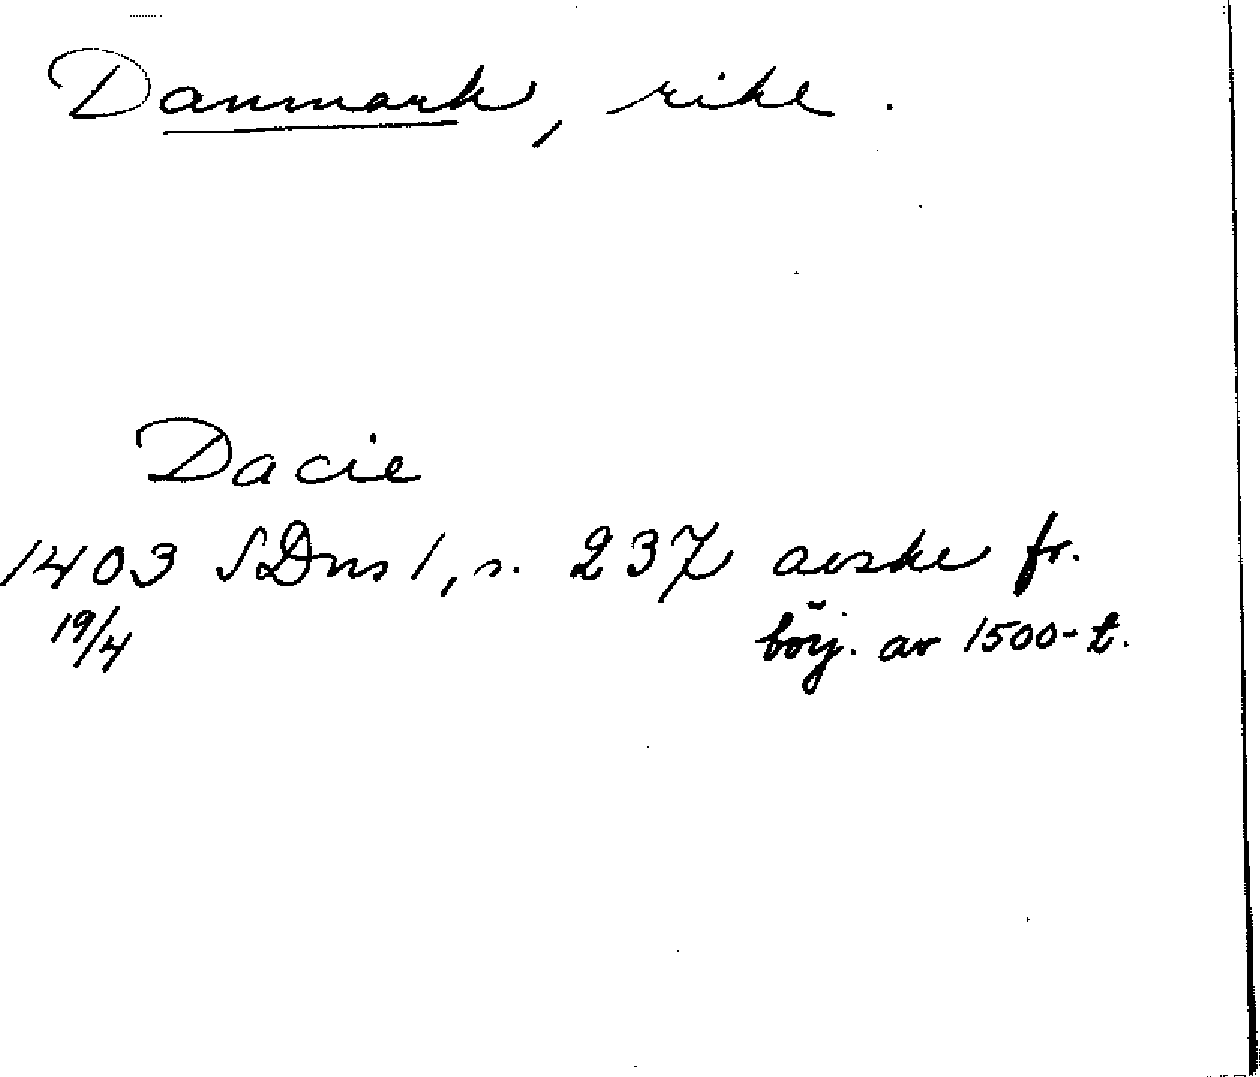 Danmark, rike.
Dacie
1403 SDns 1, s. 237 avskr fr.
19/4 börj. av 1500-t.